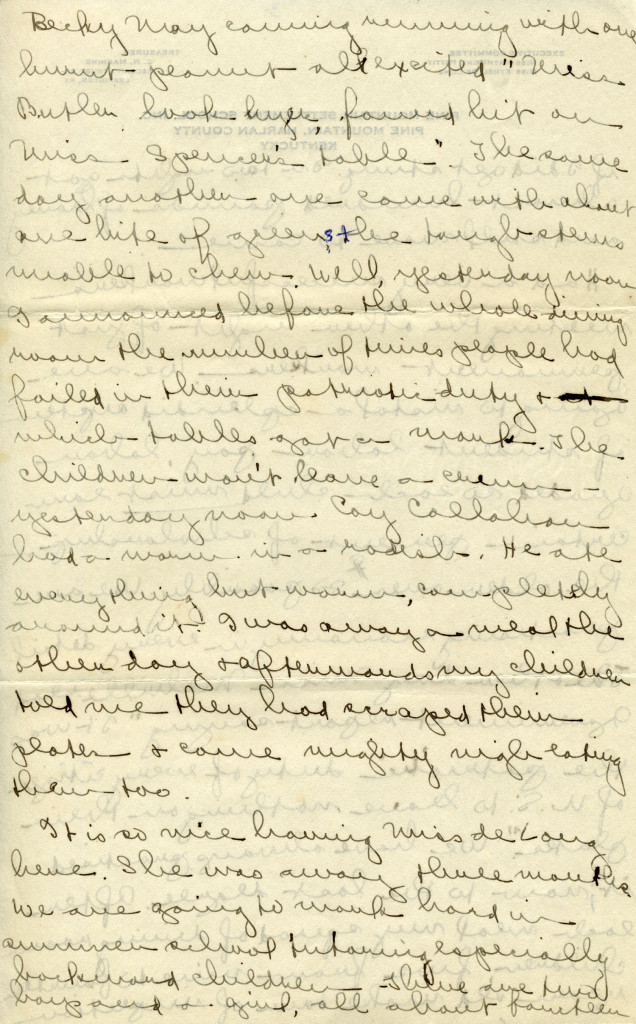 Becky May coming running with one
burnt peanut all excited "Miss
Butler look-hyer, found hit on
Miss Spencer's table". The same
day another one came with about
one bite of greens, the tough stems
unable to chew. Well, yesterday noon
I announced before the whole dining
room the number of times people had
failed in their patriotic duty &
which tables got a mark. The
children won't leave a crumb -
yesterday noon Coy Callahan
had a worm in a radish. He ate
everything but worm, completely
around it. I was away a meal the
other day & afterwards my children
told me they had scraped their
plates & come mighty nigh eating
them too.
It is so nice having Miss de Long
here. She was away three months.
We are going to work hard in
summer school tutoring especially
backward children - There are two
boys and a girl, all about fourteen
PINE MOUNTAIN, HARLAN COUNTY
KENTUCKY